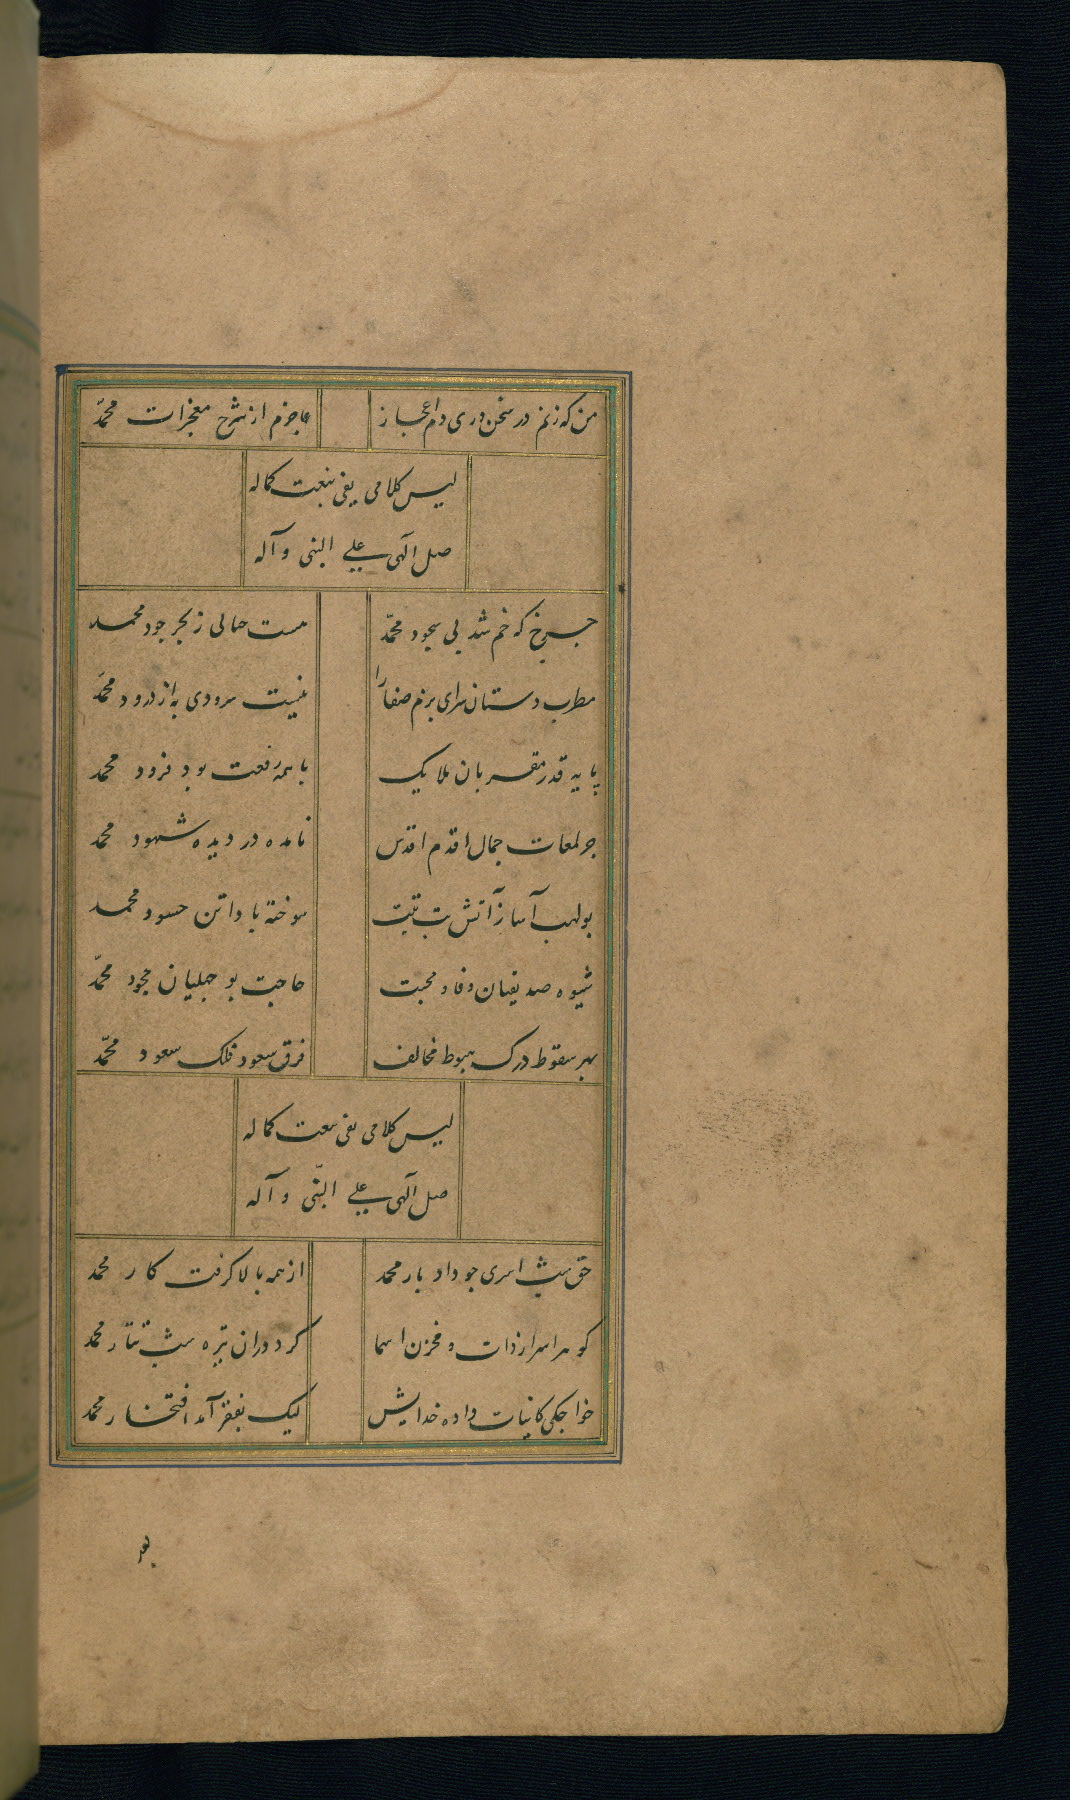 من که زنم در سخن دری دم اعجاز عاجزم از شرح معجزات محمّد
لیس کلامی یفی بنعت کماله
صل الهی علی النبی و آله
چرخ که خم شد پی سجود محمّد هست حبابی ز بحر جود محمد
مطرب دستان سرای بزم صفا را نیست سرودی به از درود محمّد
پایه قدر مقربان ملایک با همه رفعت بود فرود محمد
جز لمعات جمال اقدم اقدس نامده در دیده شهود محمد
بولهب آسا ز آتش تب تبّت سوخته بادا تن حسود محمد
شیوه صدیقیان وفا و محبت حاجت بوجهلیان جحود محمّد
بهر سقوط درک هبوط مخالف فرق سعود فلک سعود محمّد
لیس کلامی یفی بنعت کماله
صل الهی علی النبّی و آله
حق شب اسری چو داد بار محمد از همه بالا گرفت کار محمد
گوهر اسرار ذات و مخزن اسما کرد در آن تیره شب نثار محمد
خواجگی کاینات داده خدایش لیک بفقر آمد افتخار محمد